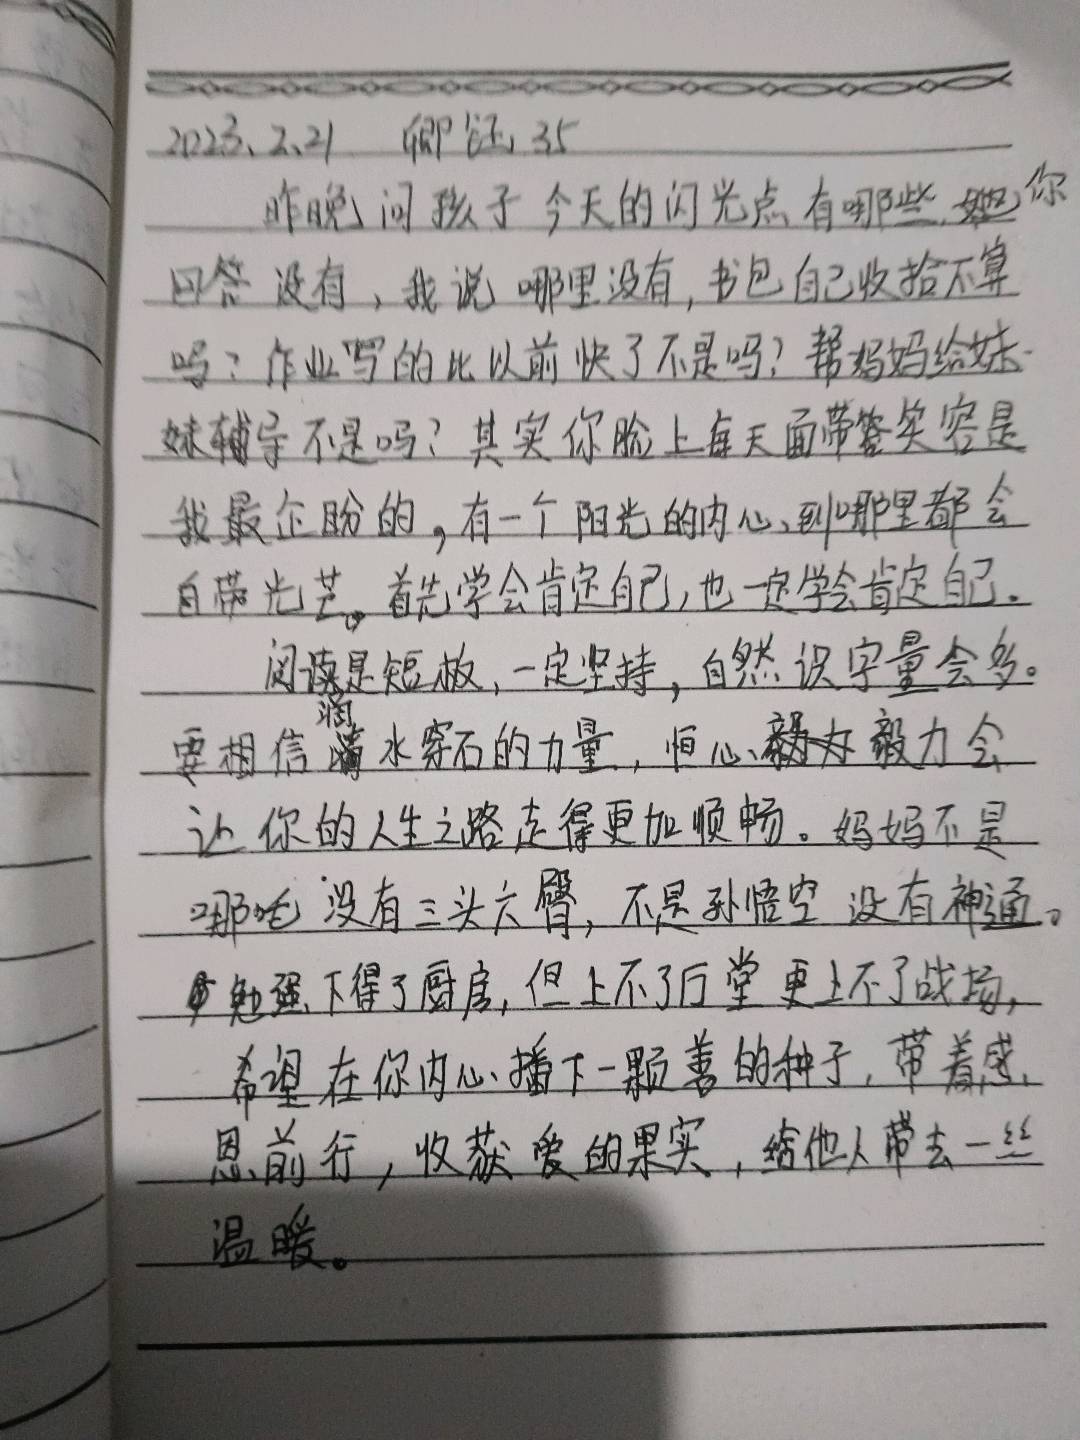 2023.2.21 卿钰 35
昨晚问孩子今天的闪光点有哪些,你
回答没有,我说哪里没有,书包自己收拾不算
吗?作业写的比以前快了不是吗?帮妈妈给妹
妹辅导不是吗?其实你脸上每天面带笑容是
我最企盼的,有一个阳光的内心、到哪里都会
自带光芒。首先学会肯定自己,也一定学会肯定自己.
阅读是短板,一定坚持,自然识字量会多。
要相信水穿石的力量,恒心、毅力会
让你的人生之路走得更加顺畅。妈妈不是
哪吒没有三头六臂,不是孙悟空没有神通。
勉强下得了厨房,但上不了厅堂更上不了战场,
希望在你内心播下一颗善的种子,带着感
恩前行,收获爱的果实,给他人带去一丝
温暖。